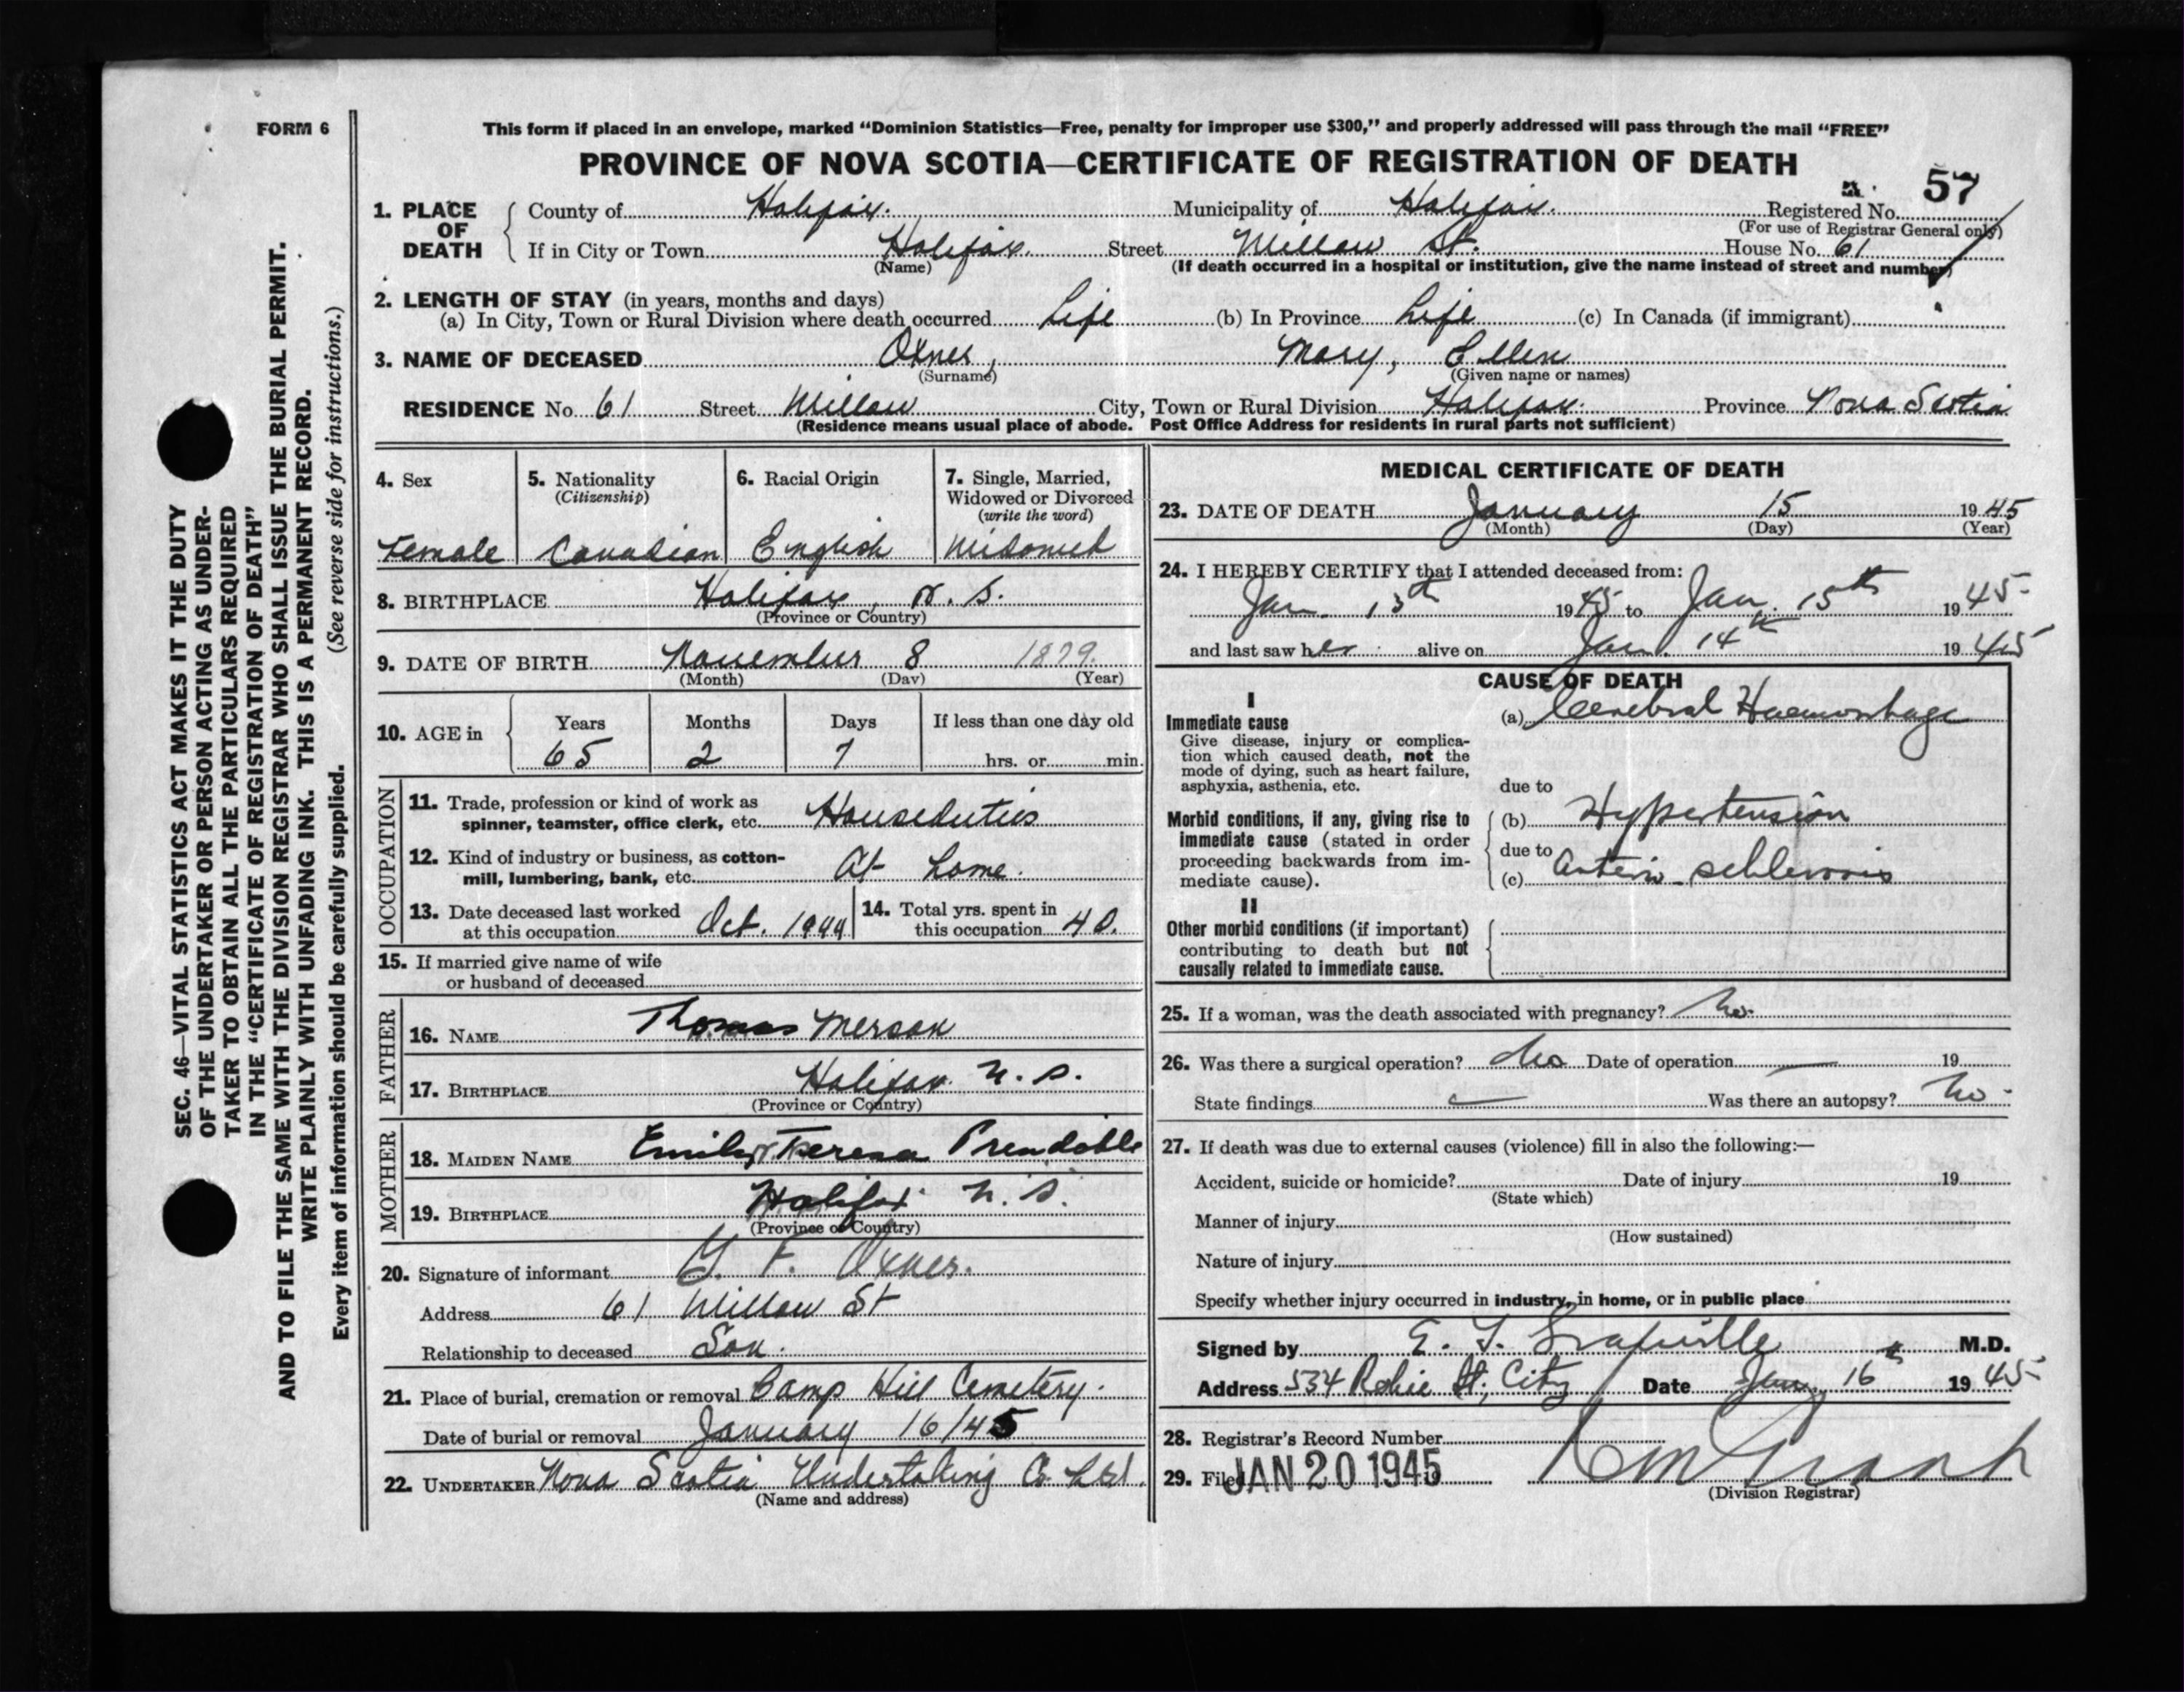 FORM 6
This form if placed in an envelope, marked "Dominion Statistics—Free, penalty for improper use $300," and properly addressed will pass through the mail "FREE"
PROVINCE OF NOVA SCOTIA—CERTIFICATE OF REGISTRATION OF DEATH
57
1. PLACE OF DEATH County of Halifax. Municipality of Halifax. Registered No.
(For use of Registrar General only)
If in City or Town Halifax. Street Willow St. House No. 61
(Name) (If death occurred in a hospital or institution, give the name instead of street and number)
2. LENGTH OF STAY (in years, months and days)
(a) In City, Town or Rural Division where death occurred Life (b) In Province Life (c) In Canada (if immigrant)
3. NAME OF DECEASED Oxner, Mary, Ellen
(Surname) (Given name or names)
RESIDENCE No. 61 Street Willow City, Town or Rural Division Halifax. Province Nova Scotia
(Residence means usual place of abode. Post Office Address for residents in rural parts not sufficient)
4. Sex
Female
5. Nationality
(Citizenship)
Canadian
6. Racial Origin
English
7. Single, Married,
Widowed or Divorced
(write the word)
Widowed
8. BIRTHPLACE Halifax, N. S.
(Province or Country)
9. DATE OF BIRTH November 8 1879.
(Month) (Day) (Year)
10. AGE in
Years Months Days If less than one day old
65 2 7 hrs. or min.
OCCUPATION
11. Trade, profession or kind of work as
spinner, teamster, office clerk, etc. Houseduties
12. Kind of industry or business, as cotton-
mill, lumbering, bank, etc. At home.
13. Date deceased last worked
at this occupation Oct. 1944
14. Total yrs. spent in
this occupation 40.
15. If married give name of wife
or husband of deceased
FATHER
16. NAME Thomas Merson
17. BIRTHPLACE Halifax N. S.
(Province or Country)
MOTHER
18. MAIDEN NAME Emily Theresa
19. BIRTHPLACE Halifax N. S.
(Province or Country)
20. Signature of informant F. Oxner.
Address 61 Willow St
Relationship to deceased Son.
21. Place of burial, cremation or removal Camp Hill Cemetery.
Date of burial or removal January 16/45
22. UNDERTAKER Nova Scotia Undertaking Co. Ltd.
(Name and address)
MEDICAL CERTIFICATE OF DEATH
23. DATE OF DEATH January 15 1945
(Month) (Day) (Year)
24. I HEREBY CERTIFY that I attended deceased from:
Jan. 13th 1945 to Jan. 15th 1945
and last saw her alive on Jan. 14th 1945
CAUSE OF DEATH
I
Immediate cause
Give disease, injury or complica-
tion which caused death, not the
mode of dying, such as heart failure,
asphyxia, asthenia, etc.
(a) Cerebral Haemorhage
due to
Morbid conditions, if any, giving rise to
immediate cause (stated in order
proceeding backwards from im-
mediate cause).
(b) Hypertension
due to
(c) Arterio-schlerosis
II
Other morbid conditions (if important)
contributing to death but not
causally related to immediate cause.
25. If a woman, was the death associated with pregnancy? No.
26. Was there a surgical operation? No Date of operation — 19
State findings — Was there an autopsy? No -
27. If death was due to external causes (violence) fill in also the following:—
Accident, suicide or homicide? Date of injury 19
(State which)
Manner of injury
(How sustained)
Nature of injury
Specify whether injury occurred in industry, in home, or in public place
Signed by E. M.D.
Address 534 Robie St., City Date Jan. 16th 1945
28. Registrar's Record Number
29. Filed JAN 20 1945 Grant
(Division Registrar)
SEC. 46—VITAL STATISTICS ACT MAKES IT THE DUTY
OF THE UNDERTAKER OR PERSON ACTING AS UNDER-
TAKER TO OBTAIN ALL THE PARTICULARS REQUIRED
IN THE "CERTIFICATE OF REGISTRATION OF DEATH"
AND TO FILE THE SAME WITH THE DIVISION REGISTRAR WHO SHALL ISSUE THE BURIAL PERMIT.
WRITE PLAINLY WITH UNFADING INK. THIS IS A PERMANENT RECORD.
Every item of information should be carefully supplied. (See reverse side for instructions.)